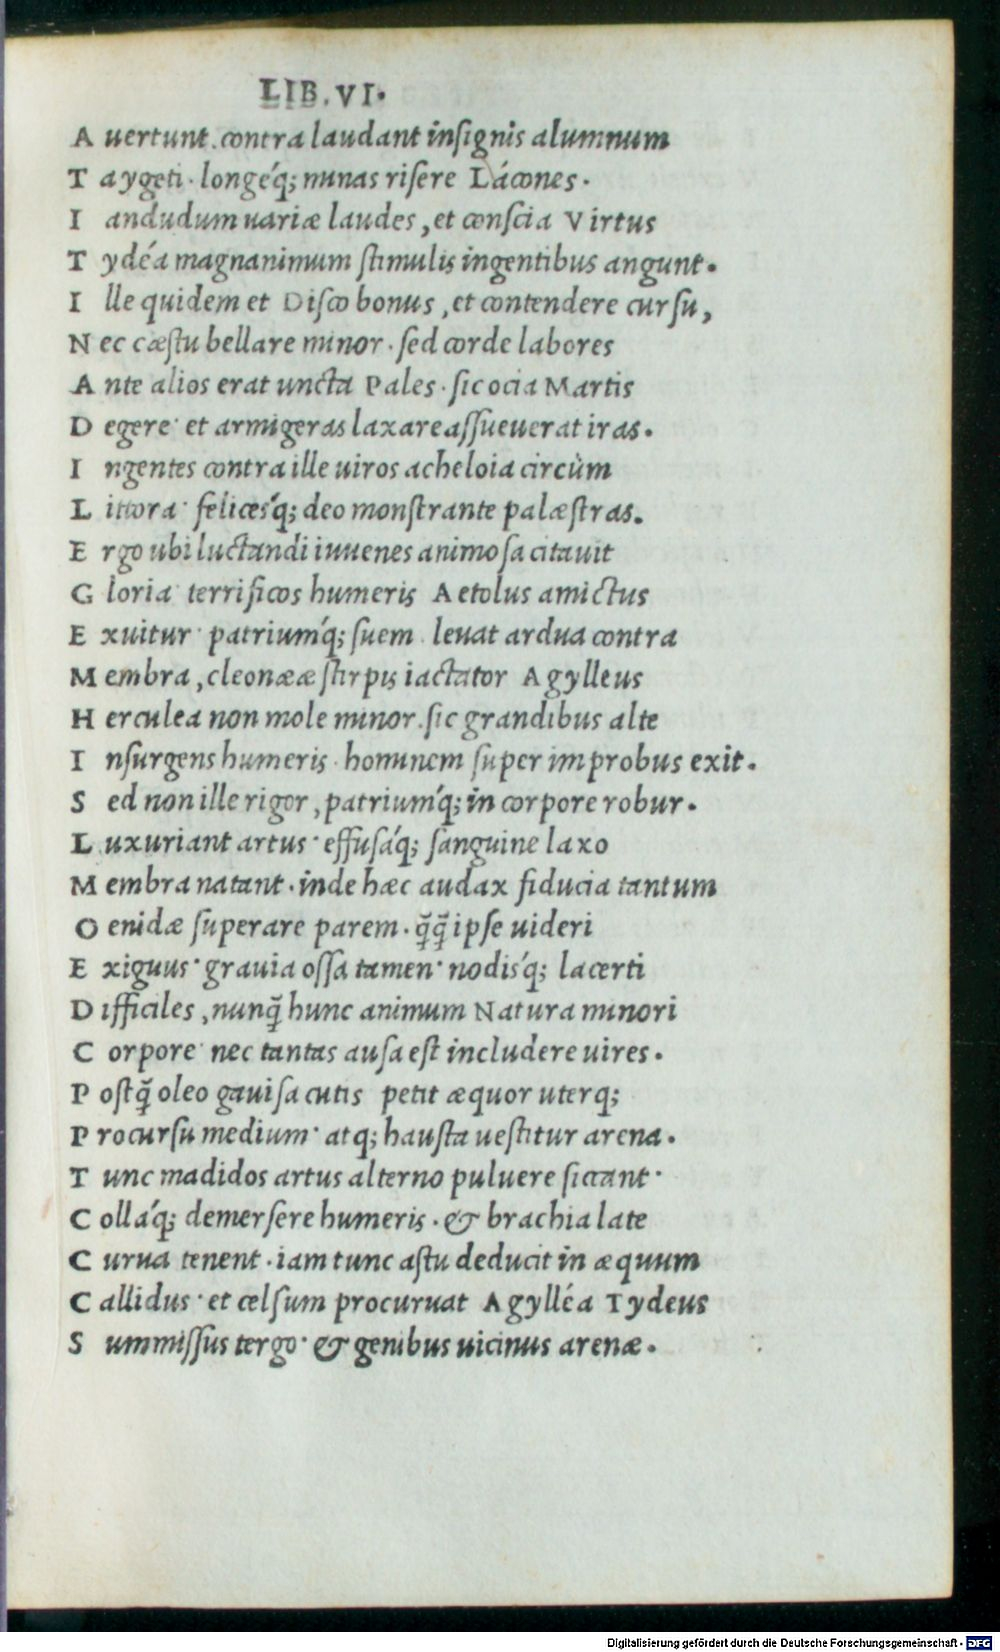 LIB. VI.
A uertunt. contra laudant insignis alumnum
T aygeti. longe'q; minas risere Lácones.
I andudum uariæ laudes, et conscia Virtus
T ydéa magnanimum stimulis ingentibus angunt.
I lle quidem et Disco bonus, et contendere cursu,
N ec cæstu bellare minor. sed corde labores
A nte alios erat uncta Pales. sic ocia Martis
D egere· et armigeras laxare assueuerat iras.
I ngentes contra ille uiros acheloia circùm
L ittora· felices'q; deo monstrante palæstras.
E rgo ubi luctandi iuuenes animosa citauit
G loria· terrificos humeris Aetolus amictus
E xuitur· patrium'q; suem. leuat ardua contra
M embra, cleonææ stirpis iactator Agylleus
H erculea non mole minor. sic grandibus alte
I nsurgens humeris· hominem super improbus exit.
S ed non ille rigor, patrium'q; in corpore robur.
L uxuriant artus· effusa'q; sanguine laxo
M embra natant. inde hæc audax fiducia tantum
O enidæ superare parem. q̃q̃ ipse uideri
E xiguus· grauia ossa tamen· nodis'q; lacerti
D ifficiles, nunq̃ hunc animum Natura minori
C orpore· nec tantas ausa est includere uires.
P ostq̃ oleo gauisa cutis petit æquor uterq;
P rocursu medium· atq; hausta uestitur arena.
T unc madidos artus alterno puluere siccant·
C olla'q; demersere humeris. & brachia late
C urua tenent. iam tunc astu deducit in æquum
C allidus· et celsum procuruat Agylléa Tydeus
S ummissus tergo· & genibus uicinus arenæ.
Digitalisierung gefördert durch die Deutsche Forschungsgemeinschaft - DFG